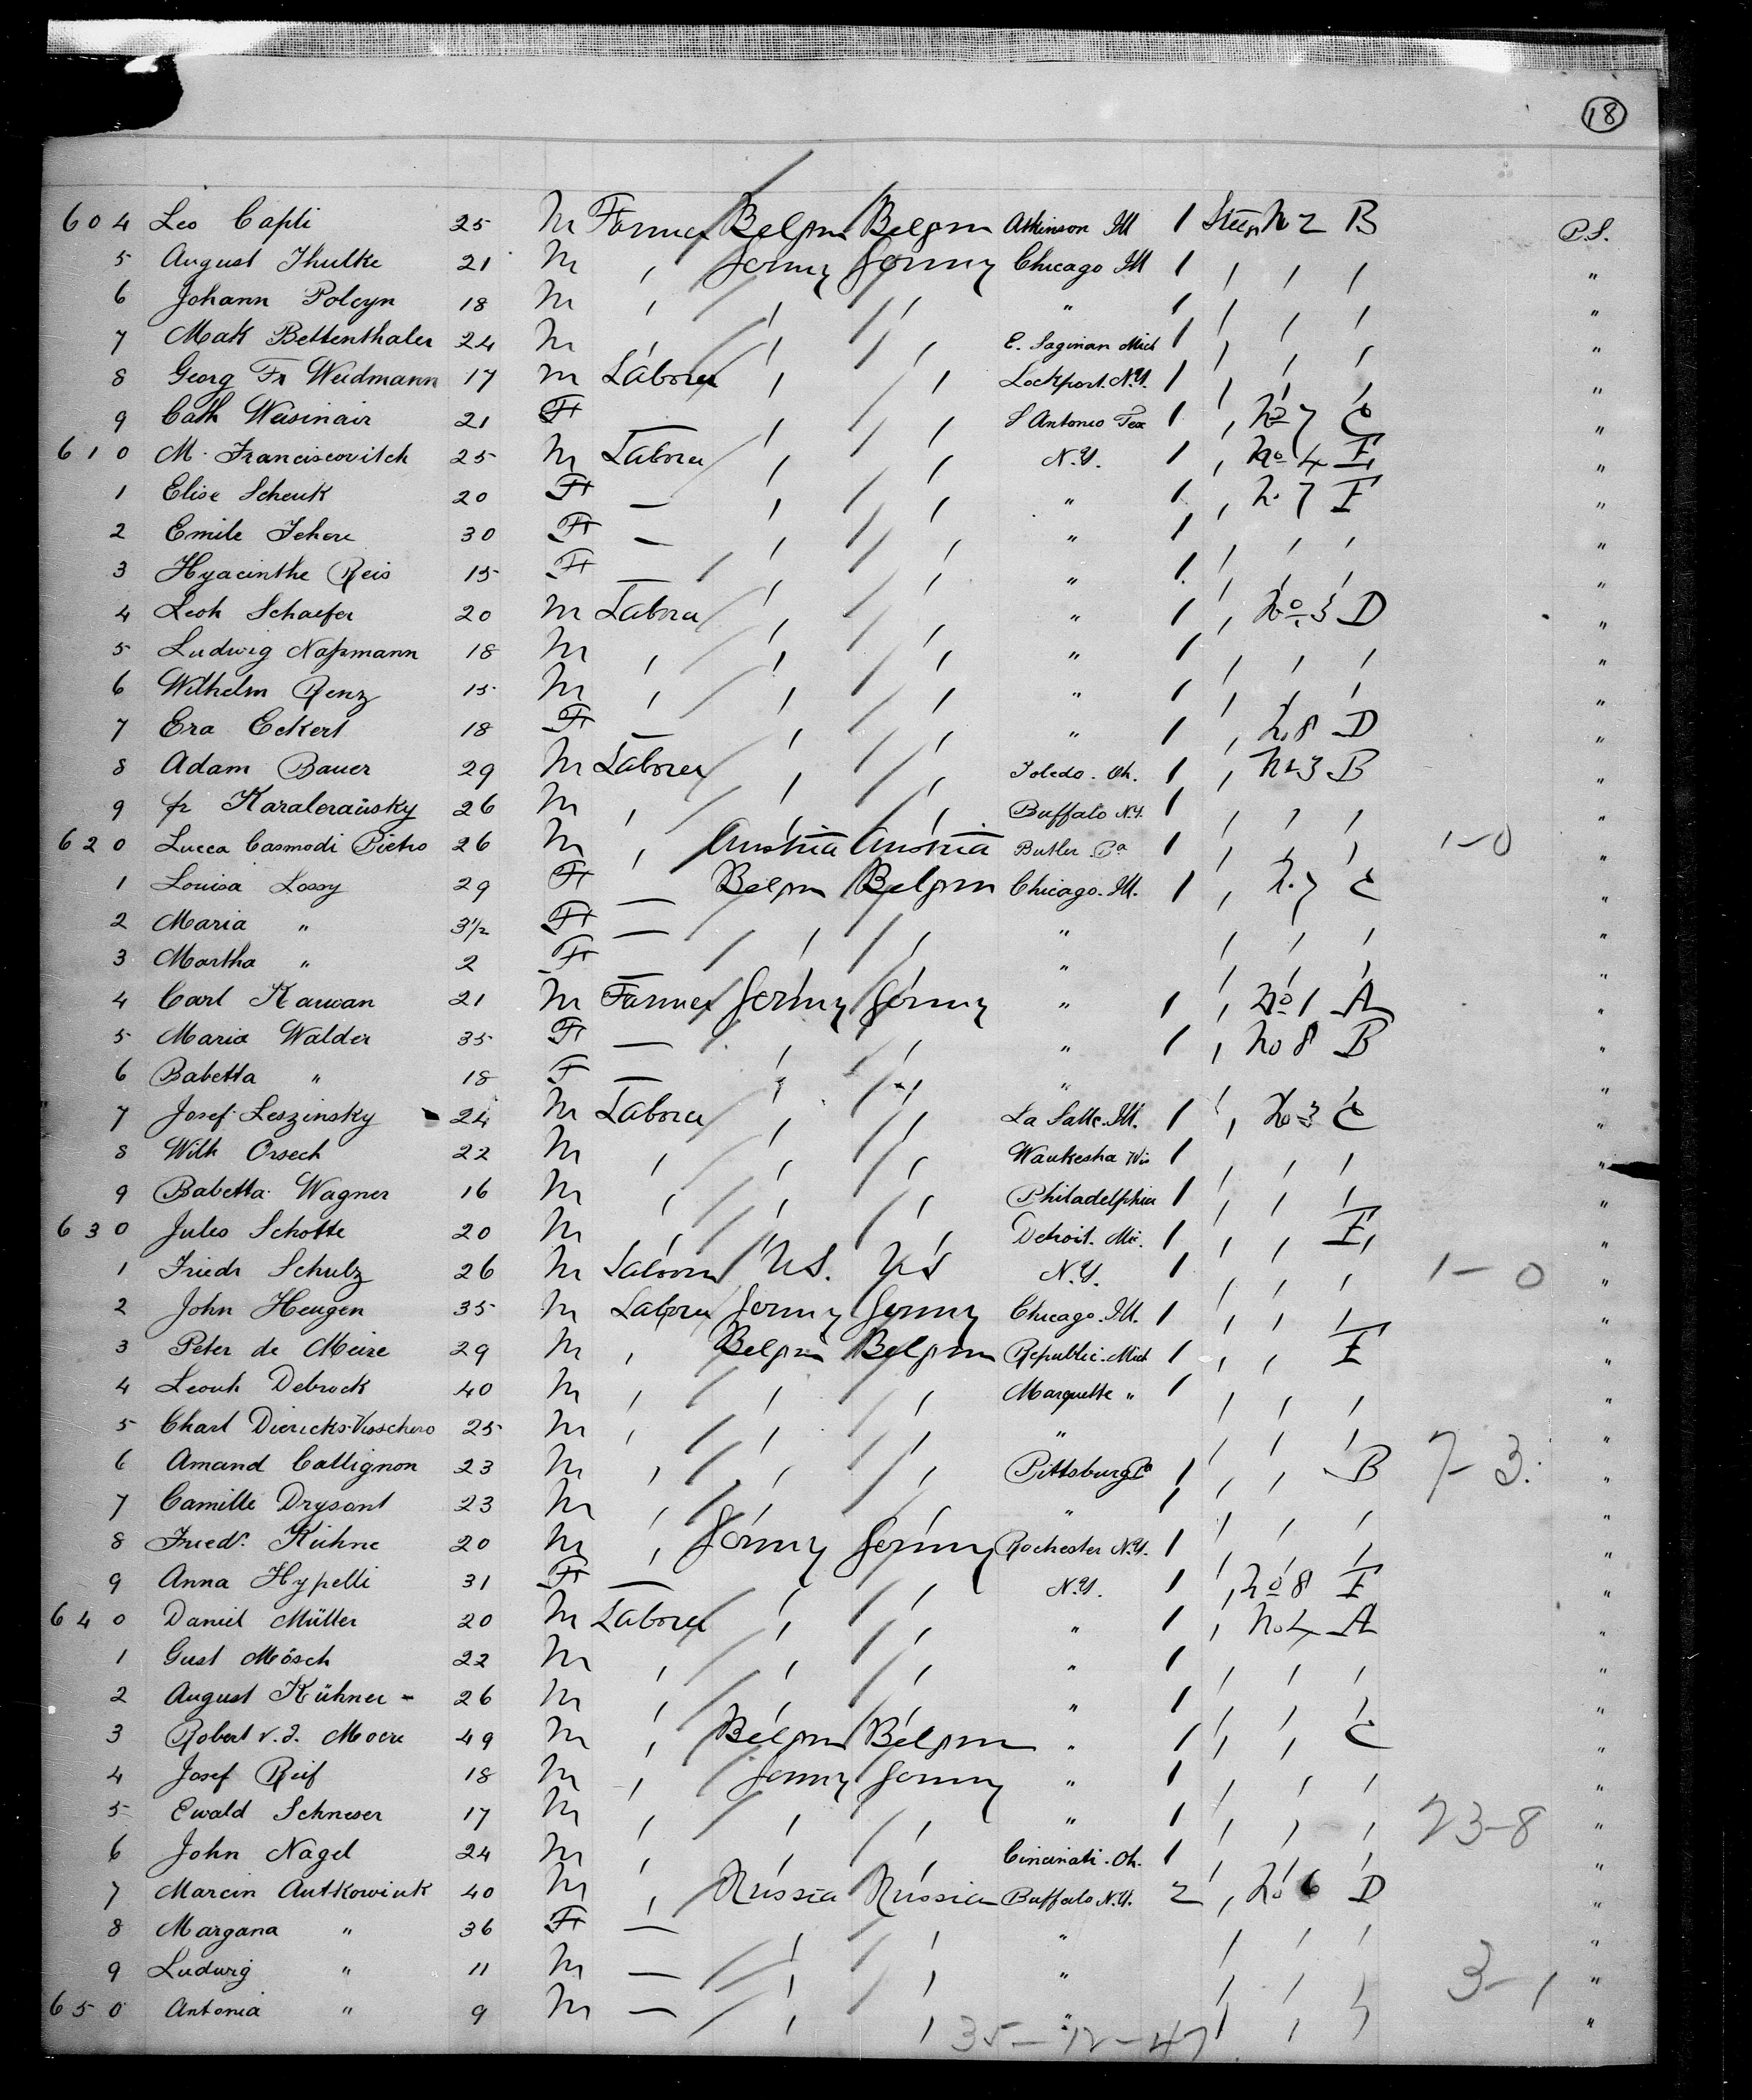 18
604 Leo Capli 25 M Farmer Belgm Belgm Atkinson Ill 1 Steer No 2 B P.S.
5 August Thulke 21 M , Germy Germy Chicago Ill 1 , , , "
6 Johann Polcyn 18 M , , , " 1 , , , "
7 Mak Bettenthaler 24 M , , , E. Saginan Mich 1 , , , "
8 Georg Fr Weidmann 17 M Labrer , , Lockport. N.Y. 1 , , , "
9 Cath Weisinair 21 F — , , S Antonio Tex 1 , No 7 C "
610 M. Franciscovitch 25 M Labrer , , N.Y. 1 , No 4 E "
1 Elise Schenk 20 F — , , " 1 , No 7 E "
2 Emile Jehere 30 F — , , " 1 , , , "
3 Hyacinthe Reis 15 F — , , " 1 , , , "
4 Leoh Schaefer 20 M Labrer , , " 1 , No 3 D "
5 Ludwig Napmann 18 M , , , " 1 , , , "
6 Wilhelm Renz 15 M , , , " 1 , , , "
7 Era Eckert 18 F — , , " 1 , No 8 D "
8 Adam Bauer 29 M Labrer , , Toledo. Oh. 1 , No 3 B "
9 fr Karaleraüsky 26 M , , , Buffalo N.Y. 1 , , , "
620 Lucca Casmodi Pietro 26 M , Austria Austria Butler Pa 1 , , , 1-0 "
1 Louisa Lossy 29 F — Belgm Belgm Chicago. Ill. 1 , No 7 C "
2 Maria " 3 1/2 F — , , " , , , "
3 Martha " 2 F — , , " , , , "
4 Carl Karwan 21 M Farmer Germy Germy " 1 , No 1 A "
5 Maria Walder 35 F — , , " 1 , No 8 B "
6 Babetta " 18 F — , , " , , , "
7 Josef Leszinsky 24 M Labrer , , La Salle. Ill. 1 , No 3 C "
8 Wilh Orsech 22 M , , , Waukesha Wis 1 , , , "
9 Babetta Wagner 16 M , , , Philadelphia 1 , , , "
630 Jules Schotte 20 M , , , Detroit. Mic. 1 , , E "
1 Friedr Schulz 26 M U.S. U.S N.Y. 1 , , , 1-0 "
2 John Heugen 35 M Labrer Germy Germy Chicago. Ill. 1 , , , "
3 Peter de Meire 29 M , Belgm Belgm Republic. Mich 1 , , E "
4 Leouh Debrock 40 M , , , Marquette " 1 , , , "
5 Charl Diericks-Visschers 25 M , , , " , , , "
6 Amand Callignon 23 M , , , Pittsburg Pa 1 , , B 7-3 "
7 Camille Drysant 23 M , , , " 1 , , , "
8 Friedr. Kühne 20 M , Germy Germy Rochester N.Y. 1 , , , "
9 Anna Hypelli 31 F — , , N.Y. 1 , No 8 E "
640 Daniel Müller 20 M Labrer , , " 1 , No 4 A "
1 Gust Mösch 22 M , , , " 1 , , , "
2 August Kühner - 26 M , , , " 1 , , , "
3 Robert v. d. Moere 49 M , Belgm Belgm " 1 , , C "
4 Josef Reif 18 M , Germy Germy " 1 , , , "
5 Ewald Schneser 17 M , , , " 1 , , , 23-8 "
6 John Nagel 24 M , , , Cincinati. Oh. 1 , , , "
7 Marcin Autkowiuk 40 M , Russia Russia Buffalo N.Y. 2 , No 6 D "
8 Margana " 36 F — , , " , , , "
9 Ludwig " 11 M — , , " , , , 3-1 "
650 Antonia " 9 M — , , " , , , "
35-12-47